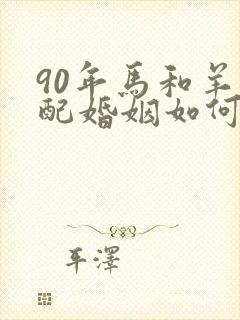 90年馬和羊
配婚姻如何
平澤